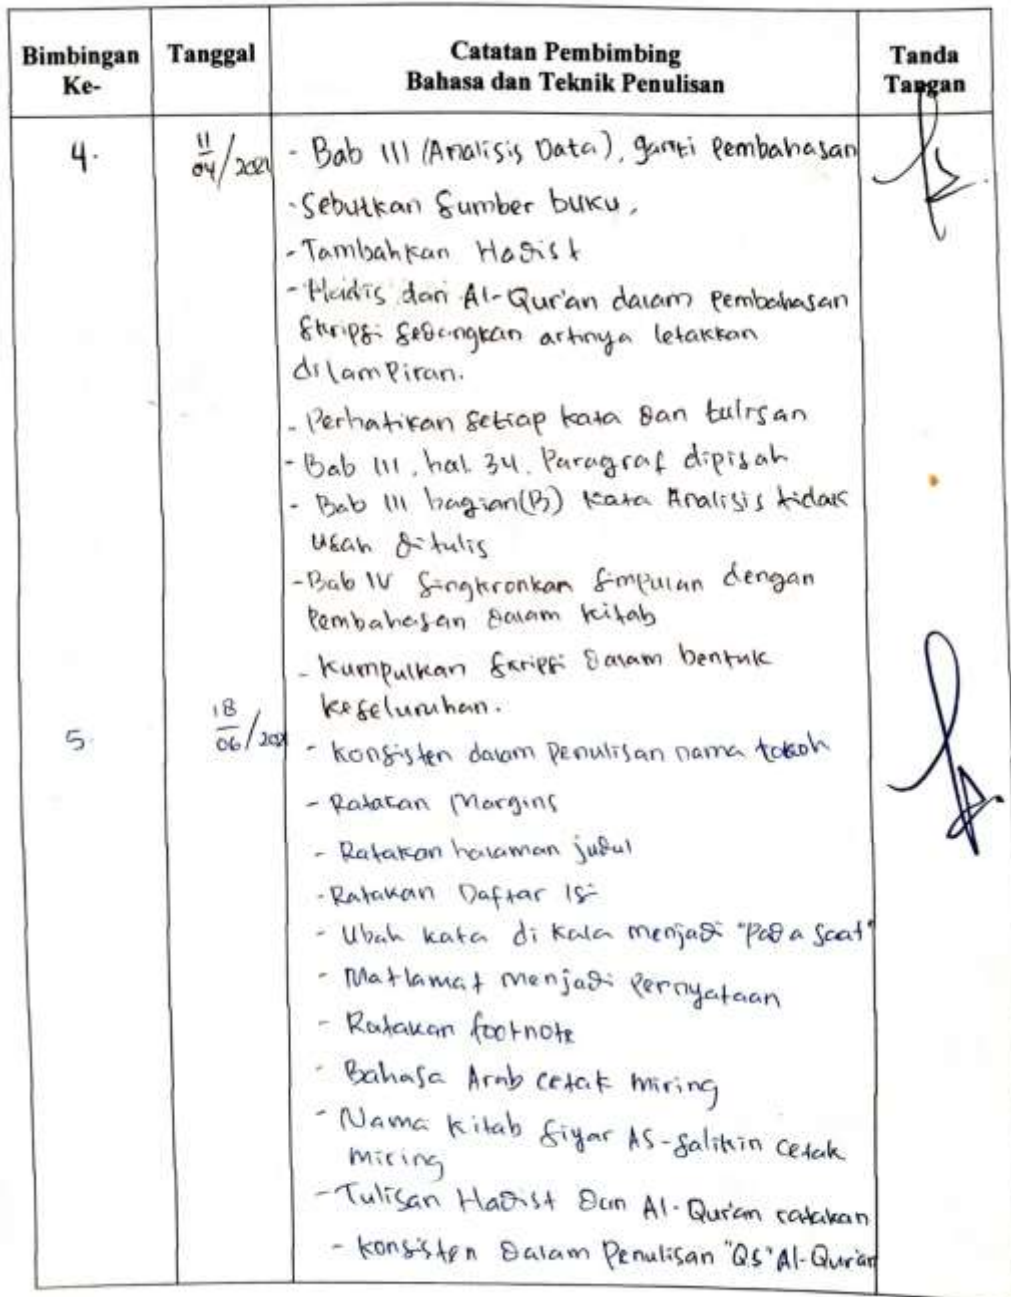 Bimbingan Ke-
Tanggal
Catatan Pembimbing
Bahasa dan Teknik Penulisan
Tanda Tangan
4.
11/04/2021
- Bab III (Analisis Data), ganti Pembahasan
- Sebutkan Sumber buku,
- Tambahkan Hadist
- Hadis dan Al-Qur'an dalam Pembahasan
Skripsi sedangkan artinya letakkan
dilampiran.
- Perhatikan setiap kata dan tulisan
- Bab III, hal. 34. Paragraf dipisah
- Bab III bagian (B) kata Analisis tidak
usah ditulis
- Bab IV Singkronkan Simpulan dengan
Pembahasan dalam kitab
- Kumpulkan Skripsi dalam bentuk
keseluruhan.
5.
18/06/2021
- konsisten dalam Penulisan nama tokoh
- Ratakan Margins
- Ratakan halaman judul
- Ratakan Daftar Isi
- Ubah kata di kala menjadi "Pada Saat"
- Matlamat menjadi Pernyataan
- Ratakan footnote
- Bahasa Arab cetak miring
- Nama Kitab Siyar AS-Salikin cetak
miring
- Tulisan Hadist dan Al-Qur'an ratakan
- konsisten dalam Penulisan "QS" Al-Qur'an